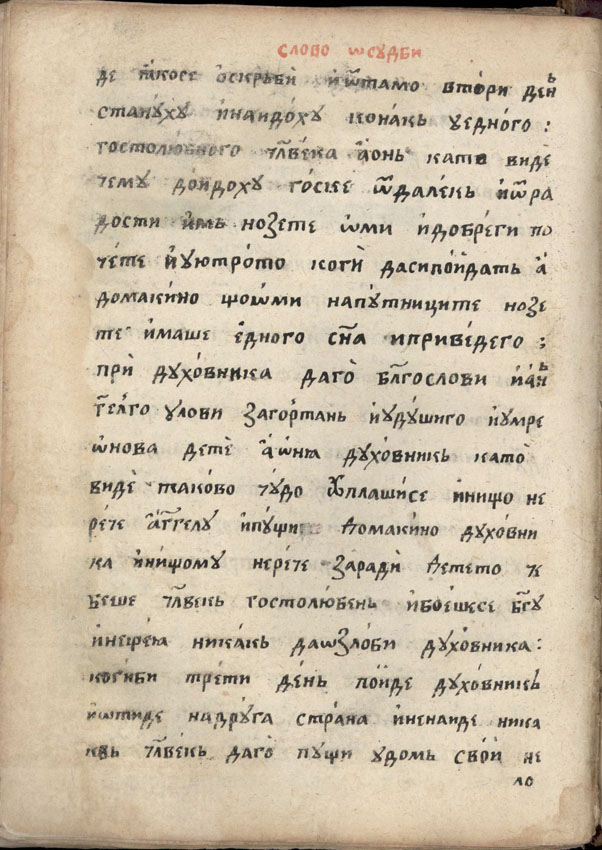 слово ѡсудби
де такосе ѻскрьби иѿтамо втори день
станꙋхꙋ инаидохꙋ конакь ꙋедного :
гостолюбного чл҃века аонь като виде
чемꙋ доидохꙋ госке ѿдалекь иѿра
дости имь нозете ѡми идобреги по
чете иꙋютрото коги дасипоидать а
домакино щоѡми напꙋтниците нозе
те имаше едного сн҃а иприведего ;
при дꙋховника даго бл҃гослови иань
гелго ꙋлови загортань иꙋдꙋшиго иꙋмре
ѡнова дете аѡнꙗ дꙋховникь като
виде таково чꙋдо ѹплашисе инищо не
рече аггелꙋ ипꙋщи домакино дꙋховни
ка инищомꙋ нерече заради детето че
беше чл҃векь гостолюбень ибоешксе бг҃ꙋ
инефеꙗ никакь даѡзлоби дꙋховника :
когиби трети день поиде дꙋховникь
иѡтиде надрꙋга страна иненаиде ника
квь чл҃векь даго пꙋщи ꙋдомь свои не
ло